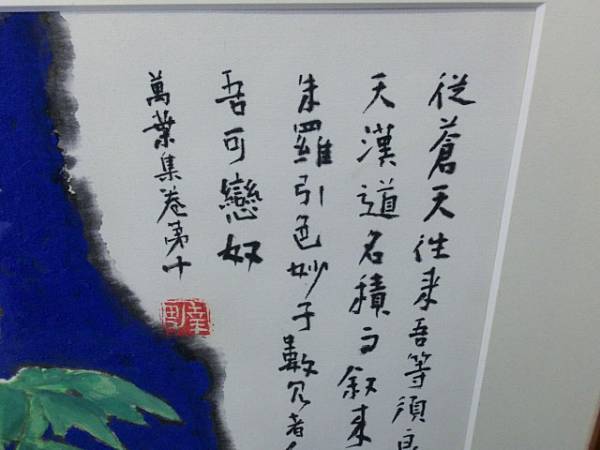 從蒼天往来吾等須良
天漢道名積而叙来
朱羅引色妙子數見者
吾可戀奴
萬葉集巻第十